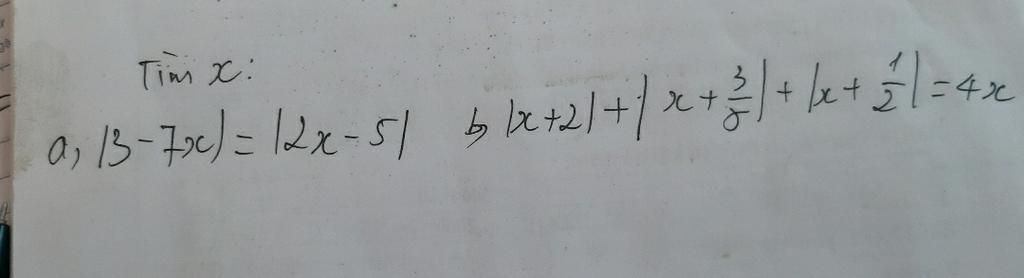 Tìm x:
a, |3-7x| = |2x-5| b, |x+2| + |x+\frac{3}{5}| + |x+\frac{1}{2}| = 4x